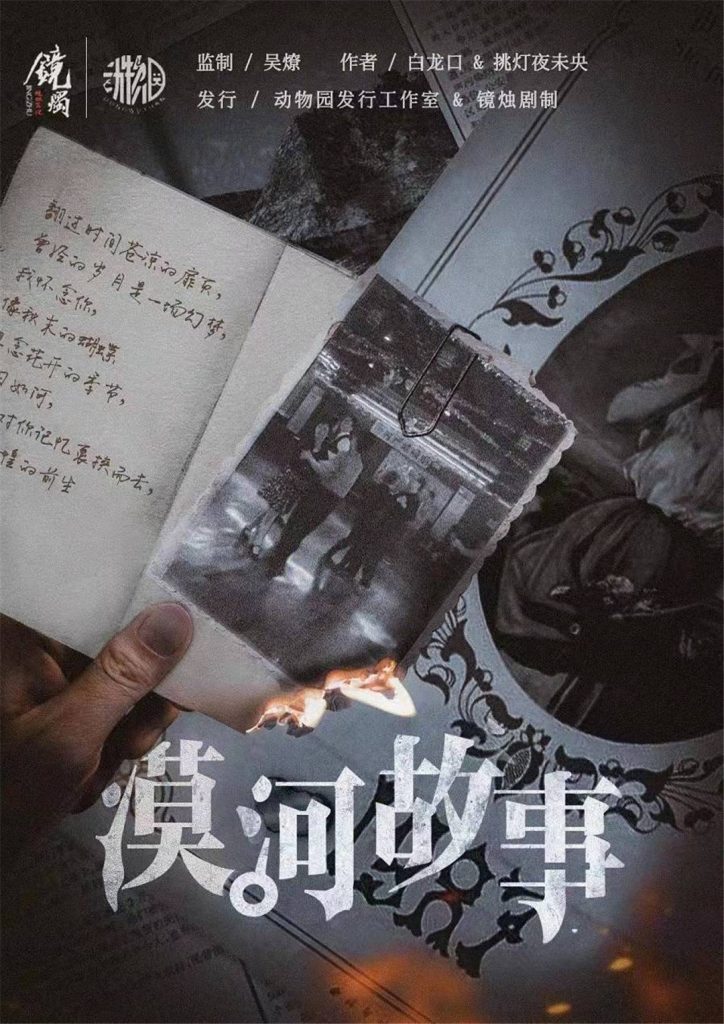 鏡
燭
监制 / 吴燎 作者 / 白龙口 & 挑灯夜未央
发行 / 动物园发行工作室 & 镜烛剧制
翻过时间苍凉的扉页,
曾经的岁月是一场幻梦,
我怀念你,
像秋末的蝴蝶
念花开的季节,
如何,
对你记忆裹挟而去,
的前生
漠河故事